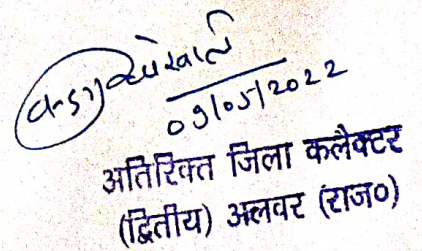 09/05/2022
अतिरिक्त जिला कलैक्टर
(द्वितीय) अलवर (राज०)